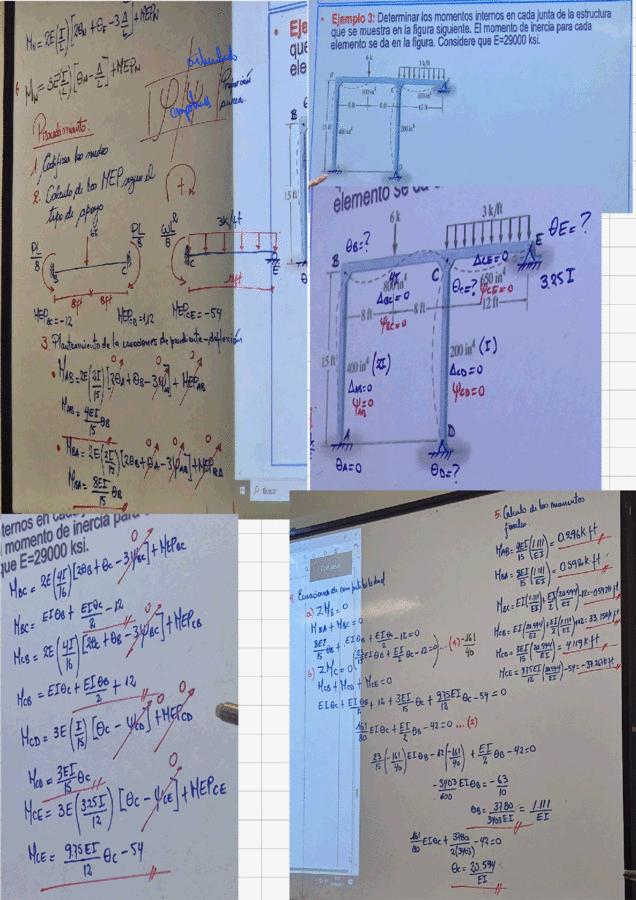 M_N = 2E(I/L)[2θ_N + θ_F - 3Δ/L] + MEP_N
M_N = 3E(I/L)[θ_N - Δ/L] + MEP_N
articulados
ψ
empotrados
Procedimiento:
1. Codificar los nudos
2. Calculo de los MEP segun el
tipo de apoyo
+
PL/8
6k
PL/8
WL²/8
3k/ft
B
C
C
E
8ft
8ft
12ft
MEP_BC = -12
MEP_CB = 12
MEP_CE = -54
3. Planteamiento de la ecuaciones de pendiente-deflexión
• M_AB = 2E(2I/15)[2θ_A + θ_B - 3ψ_AB] + MEP_AB
0
0
0
M_AB = 4EI/15 θ_B
• M_BA = 2E(2I/15)[2θ_B + θ_A - 3ψ_AB] + MEP_BA
0
0
0
M_BA = 8EI/15 θ_B
• Eje
que
ele
B
15 ft
Buscar
• Ejemplo 3: Determinar los momentos internos en cada junta de la estructura
que se muestra en la figura siguiente. El momento de inercia para cada
elemento se da en la figura. Considere que E=29000 ksi.
6 k
3 k/ft
800 in⁴
650 in⁴
8 ft
8 ft
12 ft
15 ft
400 in⁴
200 in⁴
elemento se da
6 k
3 k/ft
θ_B=?
θ_E=?
B
C
E
Δ_CE=0
4I
800 in⁴
Δ_BC=0
ψ_BC=0
θ_C=?
650 in⁴
ψ_CE=0
3.25I
8 ft
8 ft
12 ft
15 ft
400 in⁴ (2I)
Δ_AB=0
ψ_AB=0
200 in⁴ (I)
Δ_CD=0
ψ_CD=0
A
D
θ_A=0
θ_D=?
ternos en cada
l momento de inercia para
que E=29000 ksi.
M_BC = 2E(4I/16)[2θ_B + θ_C - 3ψ_BC] + MEP_BC
0
M_BC = EIθ_B + EIθ_C/2 - 12
M_CB = 2E(4I/16)[2θ_C + θ_B - 3ψ_BC] + MEP_CB
0
M_CB = EIθ_C + EIθ_B/2 + 12
M_CD = 3E(I/15)[θ_C - ψ_CD] + MEP_CD
0
0
M_CD = 3EI/15 θ_C
M_CE = 3E(3.25I/12)[θ_C - ψ_CE] + MEP_CE
0
M_CE = 9.75EI/12 θ_C - 54
4. Ecuaciones de compatibilidad
a) ΣM_B = 0
M_BA + M_BC = 0
8EI/15 θ_B + EIθ_B + EIθ_C/2 - 12 = 0
(23/15 EIθ_B + EI/2 θ_C - 12 = 0) ...(1) -161/40
b) ΣM_C = 0
M_CB + M_CD + M_CE = 0
EIθ_C + EIθ_B/2 + 12 + 3EI/15 θ_C + 9.75EI/12 θ_C - 54 = 0
161/80 EIθ_C + EI/2 θ_B - 42 = 0 ...(2)
23/15(-161/40)EIθ_B - 12(-161/40) + EI/2 θ_B - 42 = 0
-3403/600 EIθ_B = -63/10
θ_B = 3780/3403EI = 1.111/EI
161/80 EIθ_C + 3780/2(3403) - 42 = 0
θ_C = 20.594/EI
5. Calculo de los momentos
finales
M_AB = 4EI/15 (1.111/EI) = 0.296 k ft
M_BA = 8EI/15 (1.111/EI) = 0.592 k ft
M_BC = EI(1.111/EI) + EI/2 (20.594/EI) - 12 = -0.592 k ft
M_CB = EI(20.594/EI) + EI/2 (1.111/EI) + 12 = 33.150 k ft
M_CD = 3EI/15 (20.594/EI) = 4.119 k ft
M_CE = 9.75EI/12 (20.594/EI) - 54 = -37.267 k ft